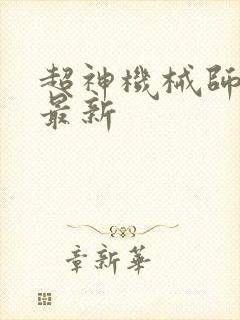 超神機械師
最新
章新華